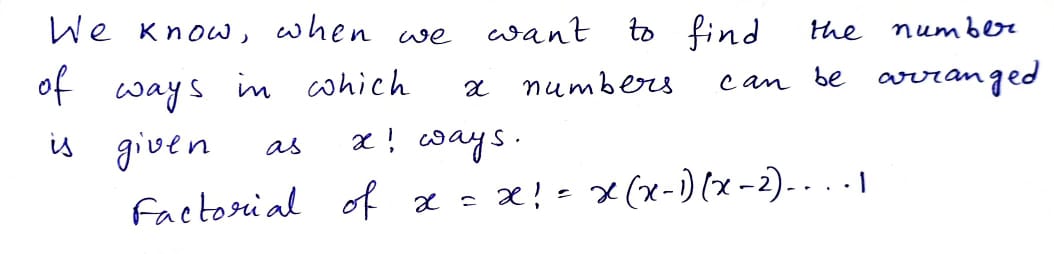 We know, when we want to find the number
of ways in which x numbers can be arranged
is given as x! ways.
Factorial of x = x! = x(x-1)(x-2)-....1